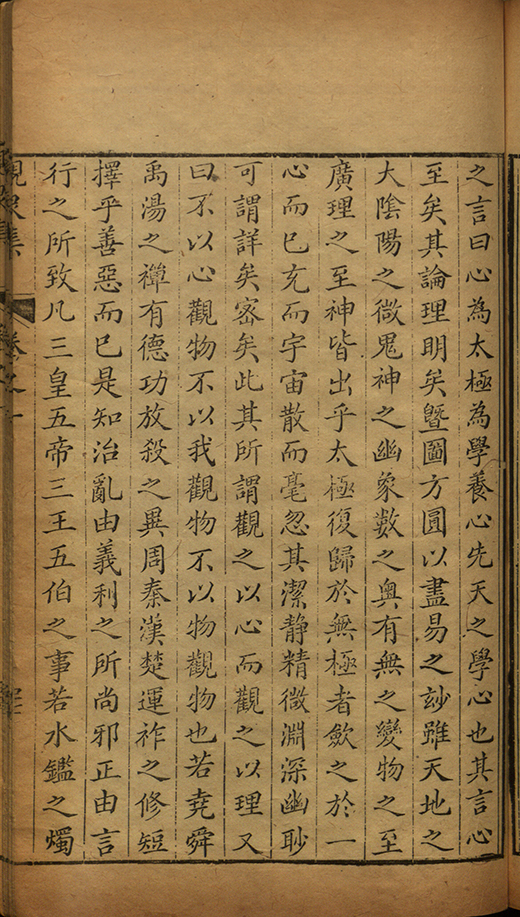 之言曰心為太極為學養心先天之學心也其言心
至矣其論理明矣曁圖方圓以盡易之玅雖天地之
大陰陽之微鬼神之幽象數之奥有無之變物之至
廣理之至神皆出乎太極復歸於無極者歛之於一
心而已充而宇宙散而毫忽其潔静精微淵深幽眇
可謂詳矣宻矣此其所謂觀之以心而觀之以理又
曰不以心觀物不以我觀物不以物觀物也若堯舜
禹湯之禪有德功放殺之異周秦漢楚運祚之修短
擇乎善惡而已是知治亂由義利之所尚邪正由言
行之所致凡三皇五帝三王五伯之事若水鑑之燭
集
卷之一